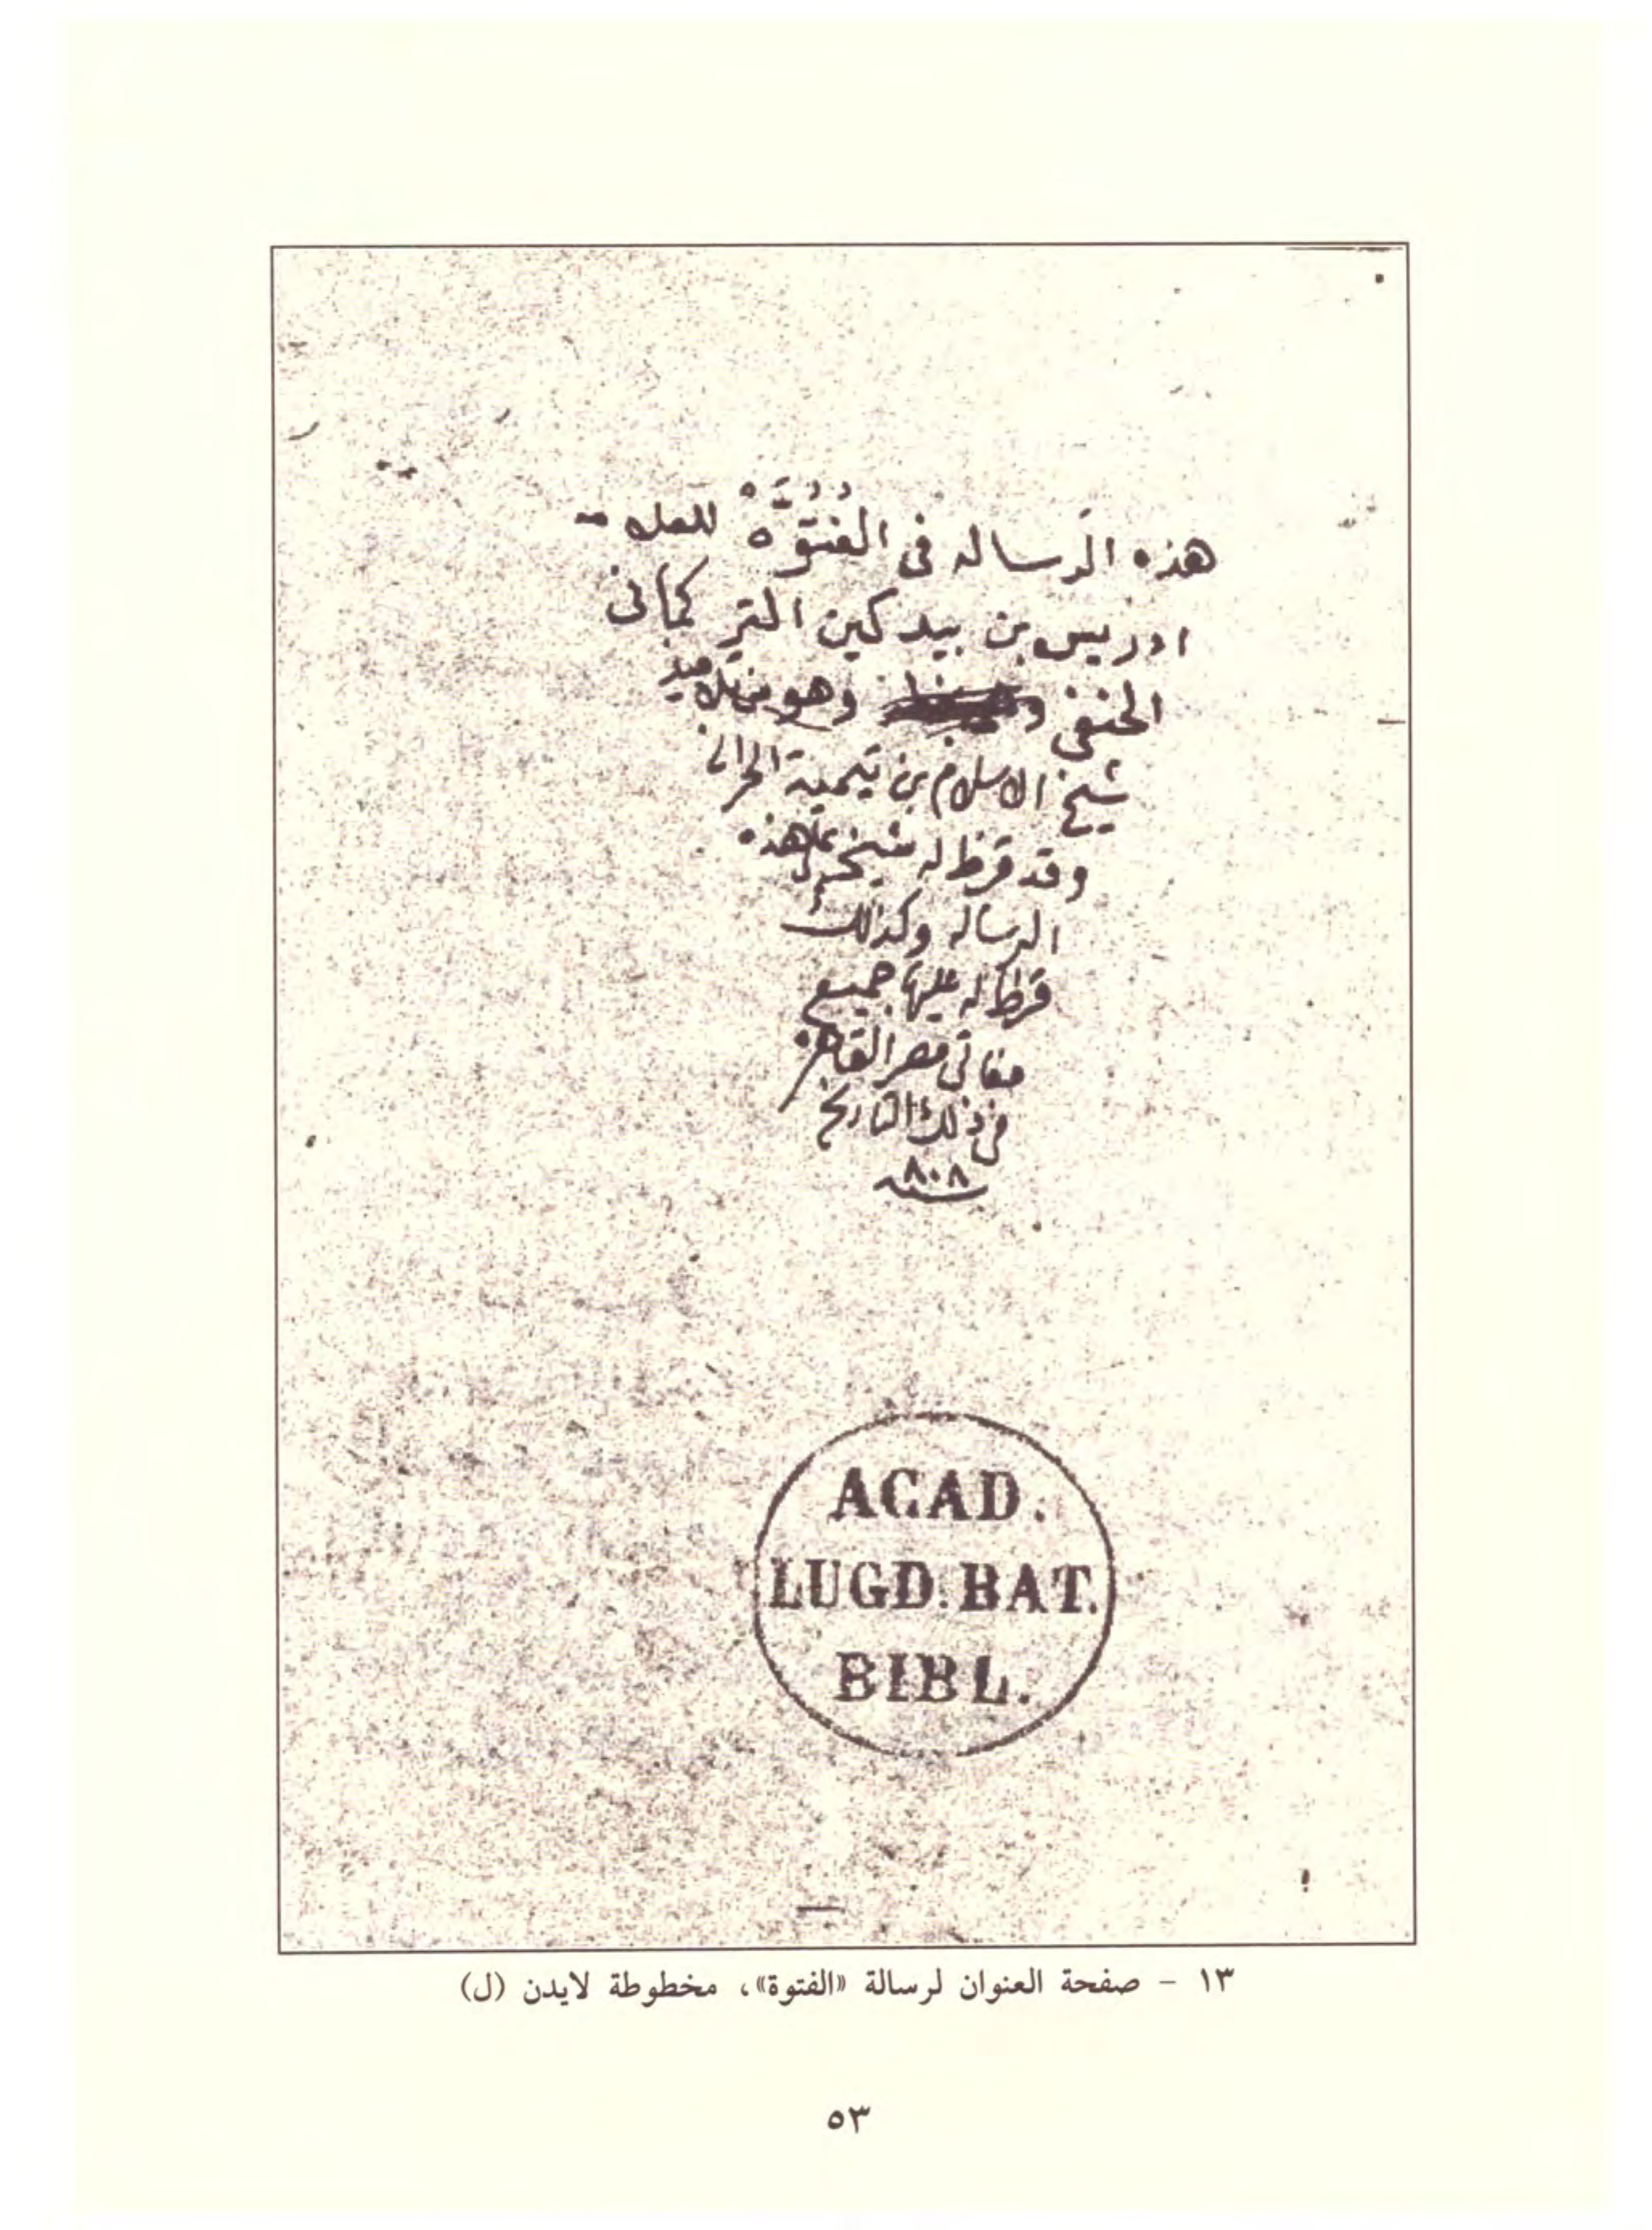 هذه الرساله فى الفُتُوَّه للعلامه
ادريس بن بيدكين التركمانى
الحنفى وهو من تلاميذ
شيخ الاسلام بن تيمية الحرانى
وقد قرظ له شيخه على هذه
الرساله وكذالك
قرظ له عليها جميع
مفاتى مصر القاهره
فى ذلك التاريخ
سنه ٨٠٨
ACAD.
LUGD. BAT.
BIBL.
١٣ - صفحة العنوان لرسالة «الفتوة»، مخطوطة لايدن (ل)
٥٣